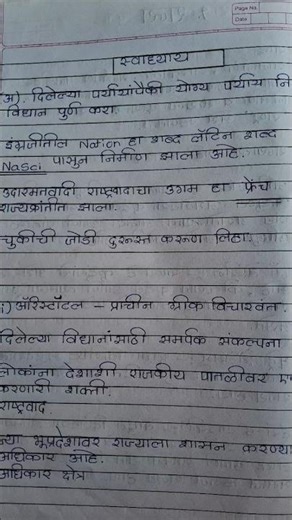 Page No.
Date
स्वाध्याय
अ). दिलेल्या पर्यायांपैकी योग्य पर्याय नि
विधान पुर्ण करा.
इंग्रजीतील Nation हा शब्द लॅटिन शब्द
Nasci पासुन निर्माण झाला आहे.
उदारमतवादी राष्ट्रवादाचा उगम हा फ्रेंच
राज्यक्रांतीत झाला.
चुकीची जोडी दुरूस्त करूण लिहा.
i) ॲरिस्टॉटल - प्राचीन ग्रीक विचारवंत.
दिलेल्या विधानांसाठी समर्पक संकल्पना
लोकांना देशाशी राजकीय पातळीवर ए
करणारी शक्ती.
राष्ट्रवाद
ज्या भूप्रदेशावर राज्याला शासन करण्या
अधिकार आहे.
अधिकार क्षेत्र